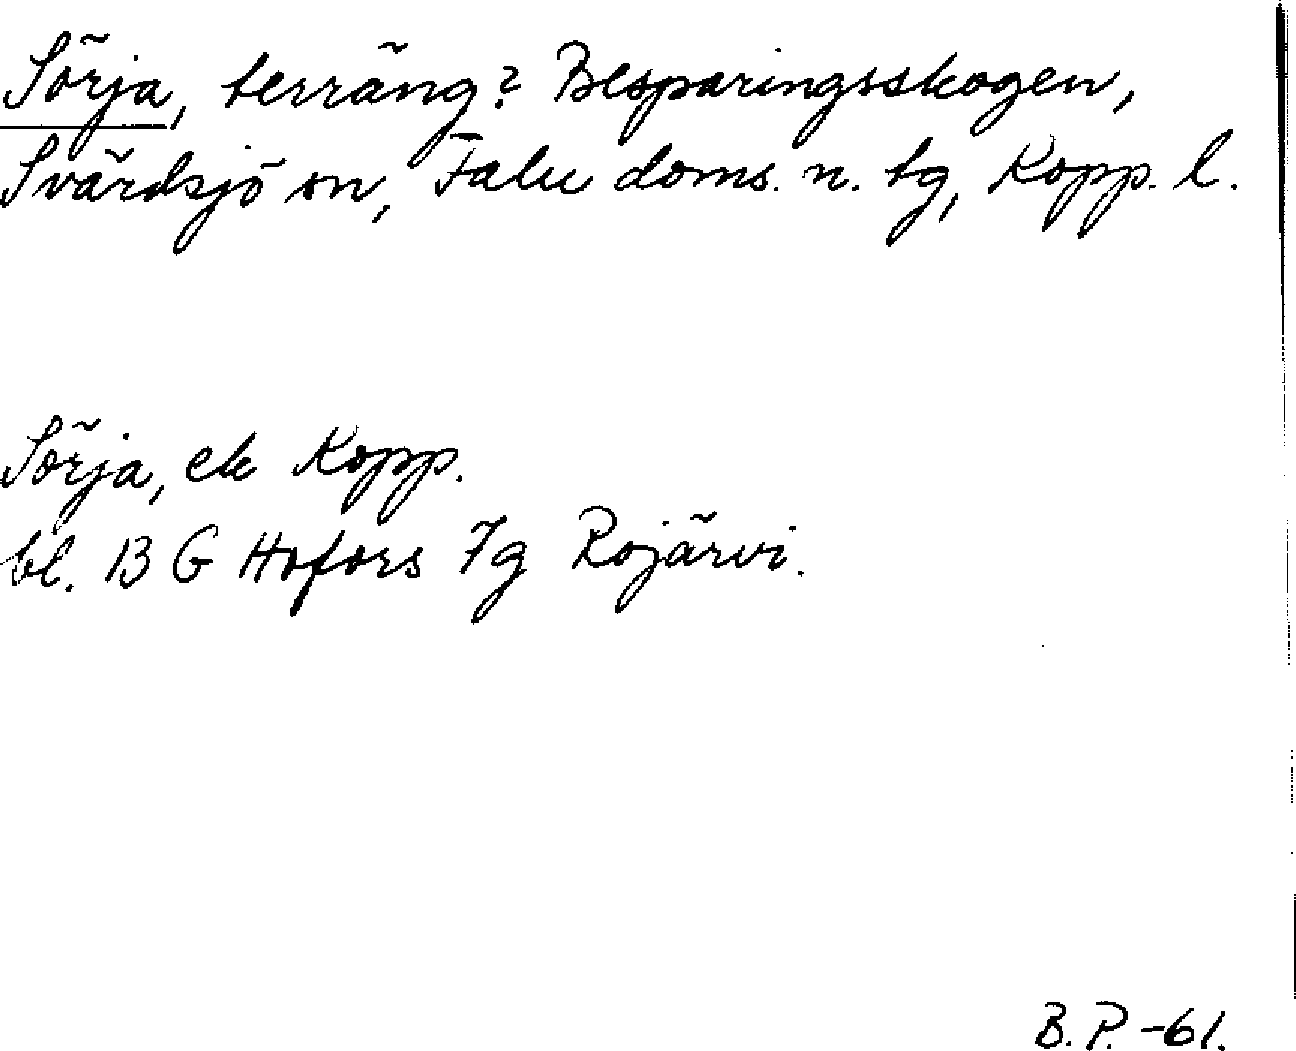 Sörja, terräng? Besparingsskogen,
Svärdsjö sn, Falu doms. n. tg, Kopp. l.
Sörja, ek Kopp.
bl. 13 G Hofors 7g Rojärvi.
B.P. -61.